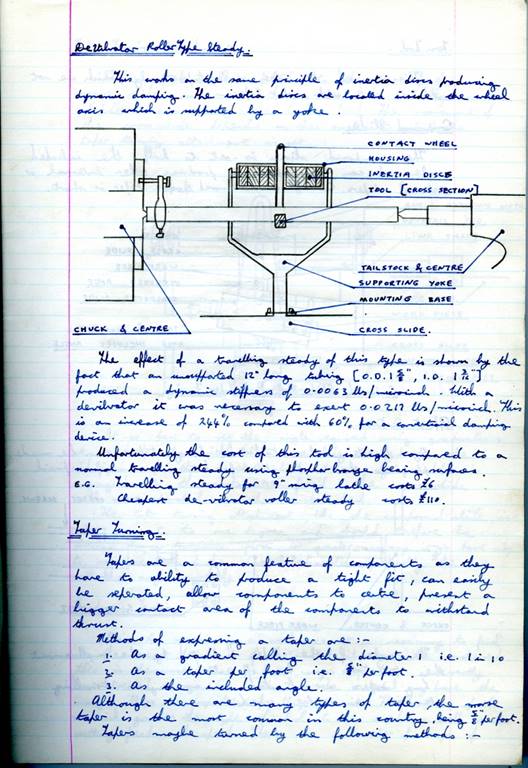 DeVibrator Roller Type Steady.
This works on the same principle of inertia discs producing
dynamic damping. The inertia discs are located inside the wheel
axis which is supported by a yoke.
CONTACT WHEEL
HOUSING
INERTIA DISCS
TOOL [CROSS SECTION]
TAILSTOCK & CENTRE
SUPPORTING YOKE
MOUNTING BASE
CHUCK & CENTRE
CROSS SLIDE.
The effect of a travelling steady of this type is shown by the
fact that an unsupported 12" long tubing [O.D. 1 5/8", I.D. 1
produced a dynamic stiffness of 0.0063 lbs/microinch. With a
devibrator it was necessary to exert 0.0217 lbs/microinch. This
is an increase of 244% compared with 60% for a conventional damping
device.
Unfortunately the cost of this tool is high compared to a
normal travelling steady using phosphor bronze bearing surfaces.
E.G. Travelling steady for 9" swing lathe costs £6
Cheapest de-vibrator roller steady costs £110.
Taper Turning.
Tapers are a common feature of components as they
have to ability to produce a tight fit, can easily
be seperated, allow components to centre, present a
bigger contact area of the components to withstand
thrust.
Methods of expressing a taper are :-
1. As a gradient calling the diameter 1 i.e. 1 in 10
2. As a taper per foot i.e. per foot.
3. As the included angle.
Although there are many types of taper, the morse
taper is the most common in this country, being 5/8" per foot.
Tapers maybe turned by the following methods :-